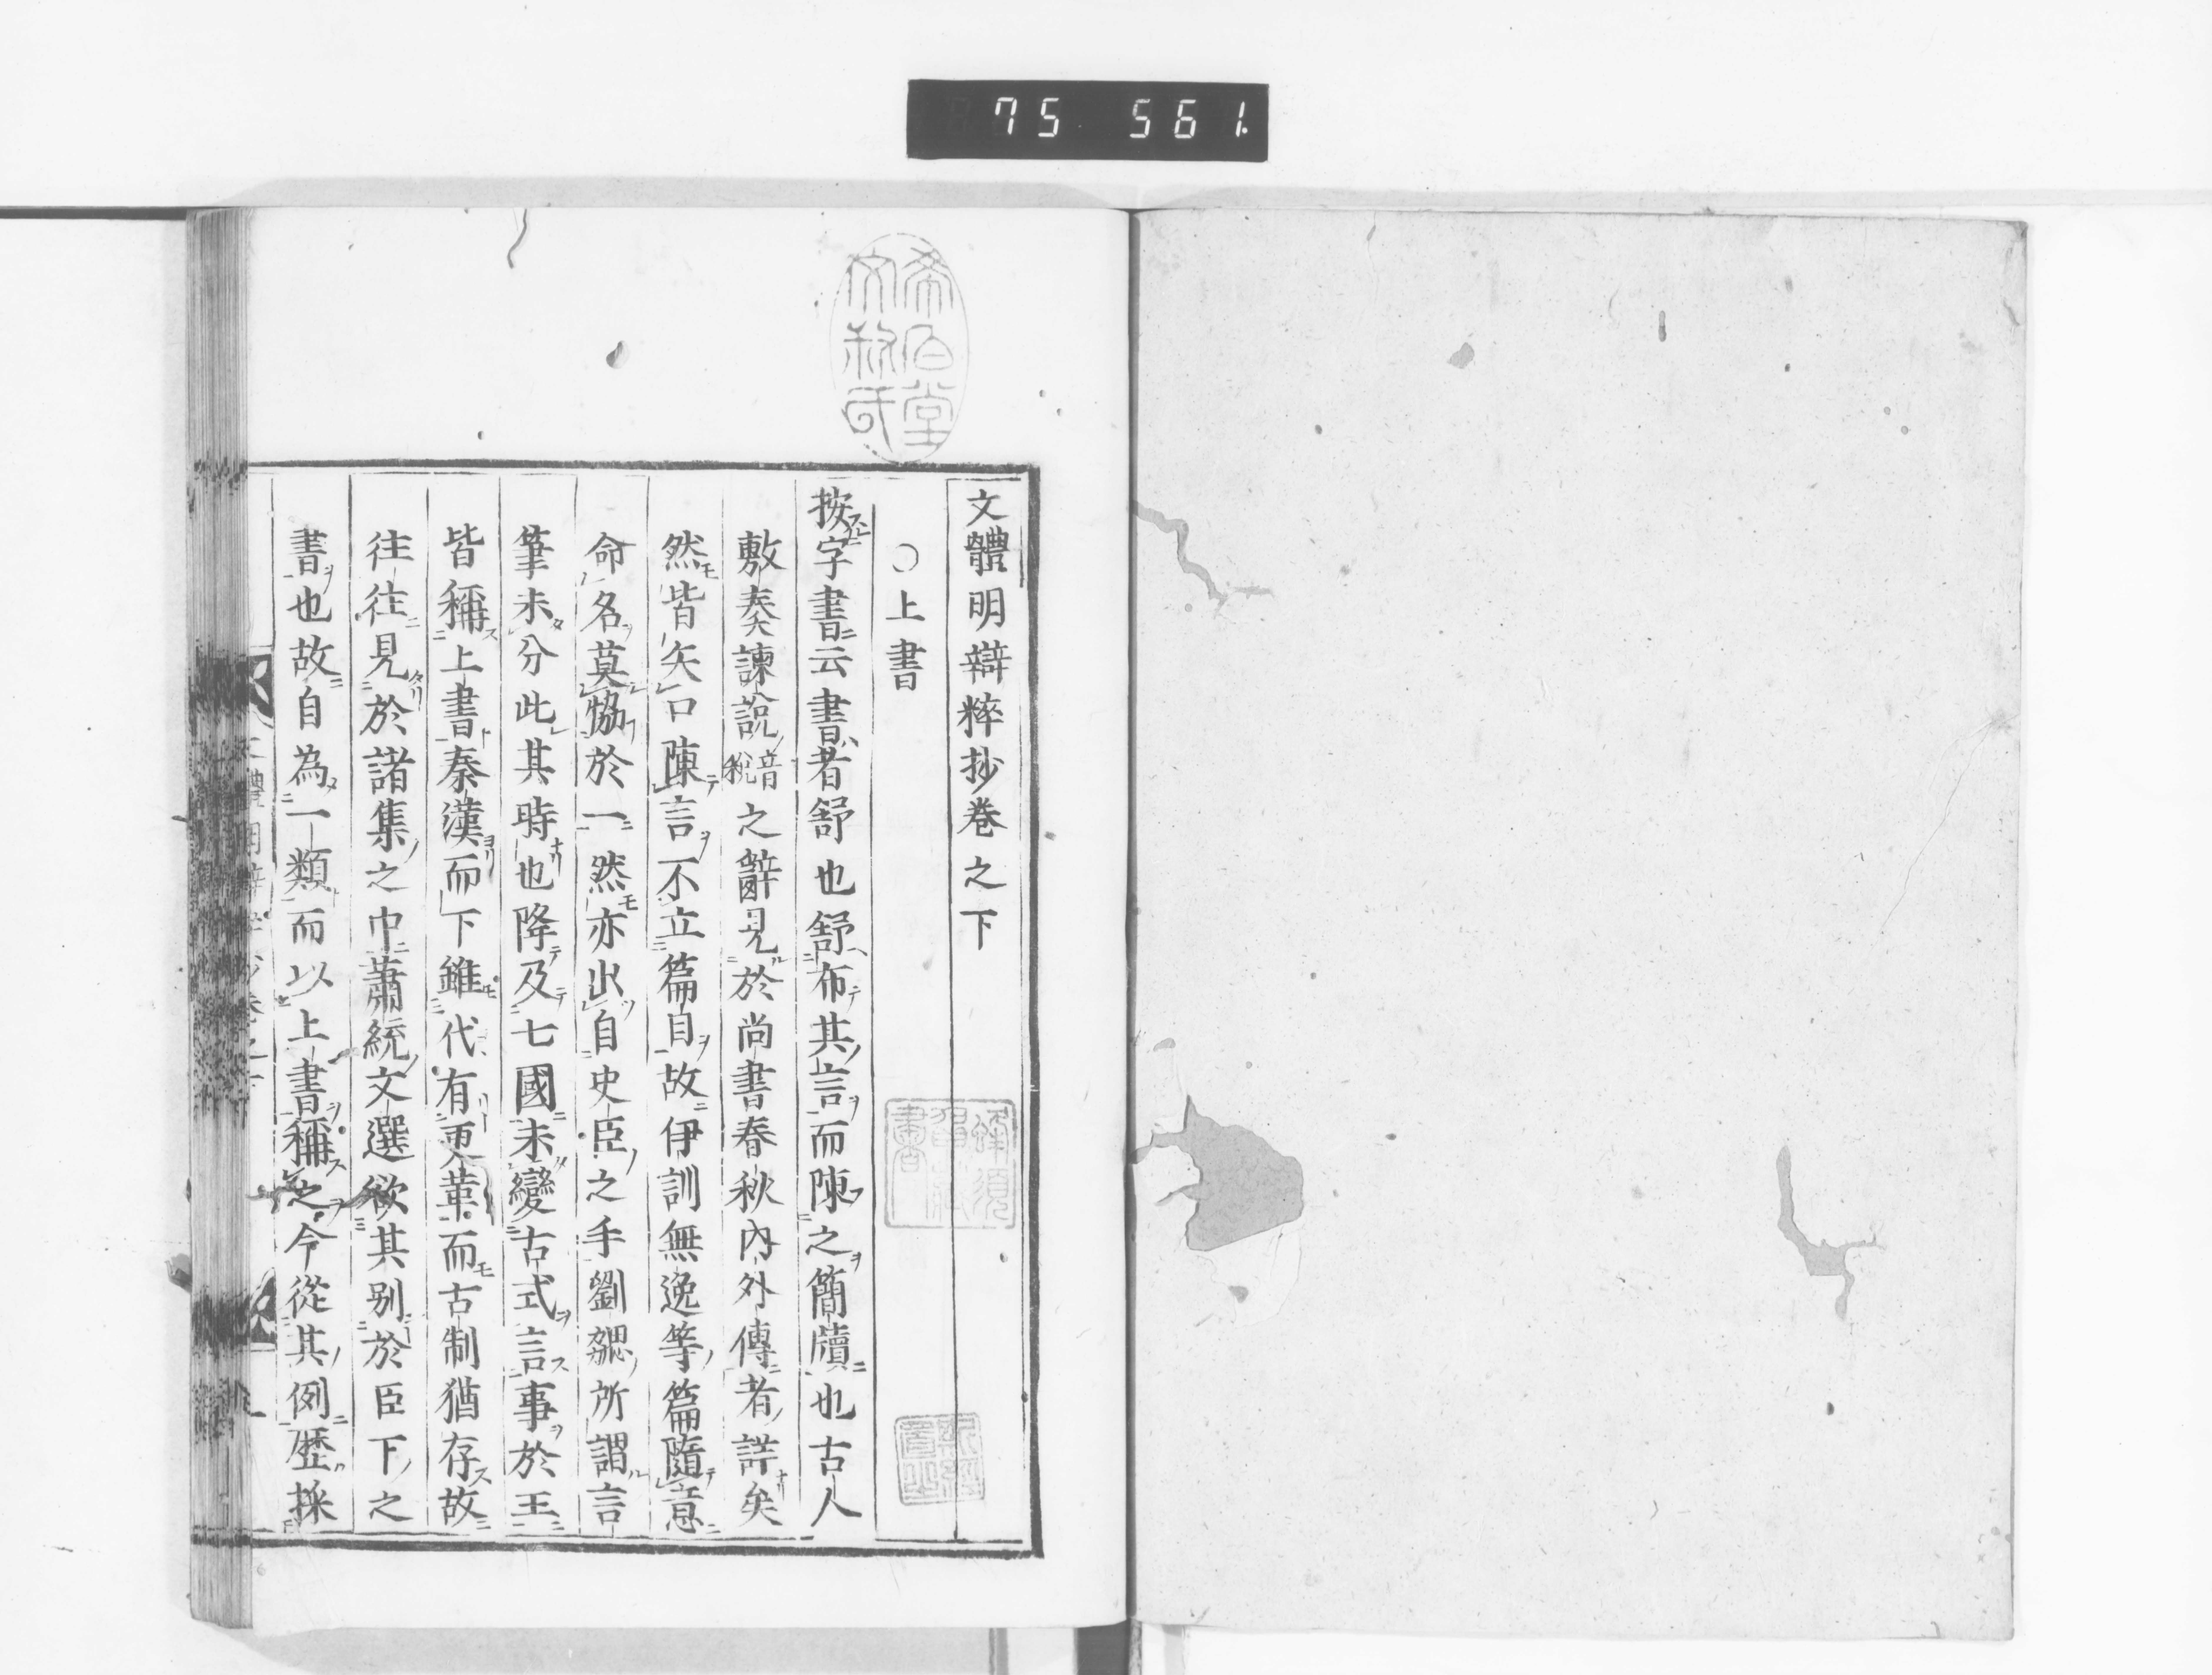 75 561.
文體明辯粹抄巻之下
○上書
按字書云書者舒也舒布其言而陳之簡牘也古人
敷奏諫說音稅之辭見於尚書春秋內外傳者詳矣
然皆矢口陳言不立篇目故伊訓無逸等篇隨意
命名莫恊於一然亦出自史臣之手劉勰所謂言
筆未分此其時也降及七國未變古式言事於王
皆稱上書秦漢而下雖代有更革而古制猶存故
往往見於諸集之中蕭統文選欲其别於臣下之
書也故自為一類而以上書稱之今從其例歷採